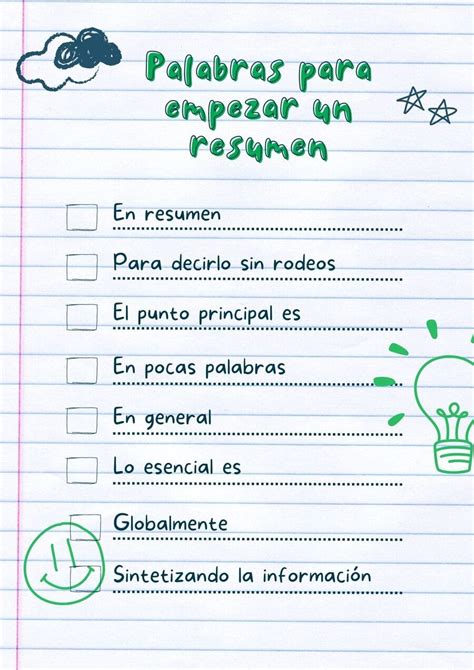 Palabras para
empezar un
resumen
En resumen
Para decirlo sin rodeos
El punto principal es
En pocas palabras
En general
Lo esencial es
Globalmente
Sintetizando la información